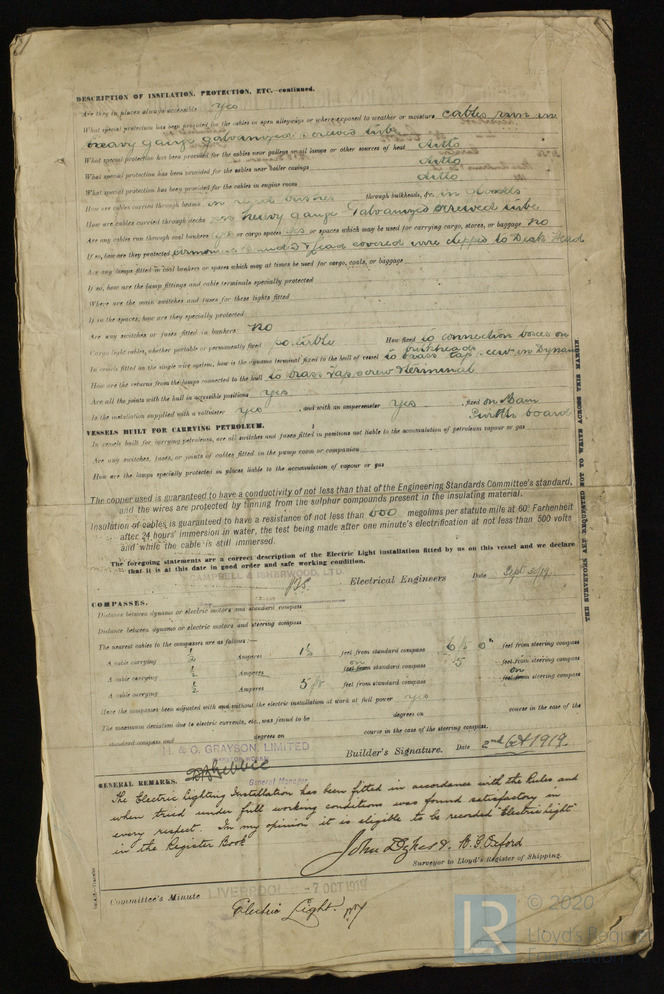 DESCRIPTION OF INSULATION, PROTECTION, ETC.—continued.
Are they in places always accessible yes
What special protection has been provided for the cables in open alleyways or where exposed to weather or moisture cables run in
heavy gauge galvanized screwed tube
What special protection has been provided for the cables near galleys or oil lamps or other sources of heat ditto
What special protection has been provided for the cables near boiler casings ditto
What special protection has been provided for the cables in engine room ditto
How are cables carried through beams in through bulkheads, &c. in
How are cables carried through decks heavy gauge Galvanized screwed tube
Are any cables run through coal bunkers or cargo spaces yes or spaces which may be used for carrying cargo, stores, or baggage no
If so, how are they protected armoured and lead covered wire clipped to Deck Head
Are any lamps fitted in coal bunkers or spaces which may at times be used for cargo, coals, or baggage
If so, how are the lamp fittings and cable terminals specially protected
Where are the main switches and fuses for these lights fitted
If in the spaces, how are they specially protected
Are any switches or fuses fitted in bunkers no
Cargo light cables, whether portable or permanently fixed portable How fixed to connection boxes on
bulkheads
In vessels fitted on the single wire system, how is the dynamo terminal fixed to the hull of vessel to brass tap screw in Dynamo
How are the returns from the lamps connected to the hull to brass tap screw terminal
Are all the joints with the hull in accessible positions yes
Is the installation supplied with a voltmeter yes , and with an amperemeter yes , fixed on Main
Switch board
VESSELS BUILT FOR CARRYING PETROLEUM.
In vessels built for carrying petroleum, are all switches and fuses fitted in positions not liable to the accumulation of petroleum vapour or gas
Are any switches, fuses, or joints of cables fitted in the pump room or companion
How are the lamps specially protected in places liable to the accumulation of vapour or gas
The copper used is guaranteed to have a conductivity of not less than that of the Engineering Standards Committee's standard,
and the wires are protected by tinning from the sulphur compounds present in the insulating material.
Insulation of cables is guaranteed to have a resistance of not less than 600 megohms per statute mile at 60° Fahrenheit
after 24 hours' immersion in water, the test being made after one minute's electrification at not less than 500 volts
and while the cable is still immersed.
The foregoing statements are a correct description of the Electric Light installation fitted by us on this vessel and we declare
that it is at this date in good order and safe working condition.
CAMPBELL & ISHERWOOD, LTD.
Electrical Engineers Date
COMPASSES.
Distance between dynamo or electric motors and standard compass
Distance between dynamo or electric motors and steering compass
The nearest cables to the compasses are as follows:—
A cable carrying Amperes feet from standard compass feet from steering compass
A cable carrying 1/2 Amperes on feet from standard compass 5 feet from steering compass
A cable carrying 1/2 Amperes feet from standard compass on feet from steering compass
Have the compasses been adjusted with and without the electric installation at work at full power yes
The maximum deviation due to electric currents, etc., was found to be degrees on course in the case of the
standard compass and degrees on course in the case of the steering compass.
H. & C. GRAYSON, LIMITED
General Manager
Builder's Signature. Date 2nd Oct 1919.
GENERAL REMARKS.
The Electric Lighting Installation has been fitted in accordance with the Rules and
when tried under full working conditions was found satisfactory in
every respect. In my opinion it is eligible to be recorded "Electric Light"
in the Register Book
John Dykes & W. G. Oxford
Surveyor to Lloyd's Register of Shipping.
Committee's Minute LIVERPOOL 7 OCT 1919
Electric Light.
THE SURVEYORS ARE REQUESTED NOT TO WRITE ACROSS THE MARGIN
© 2020
LR
Lloyd's Register
Foundation